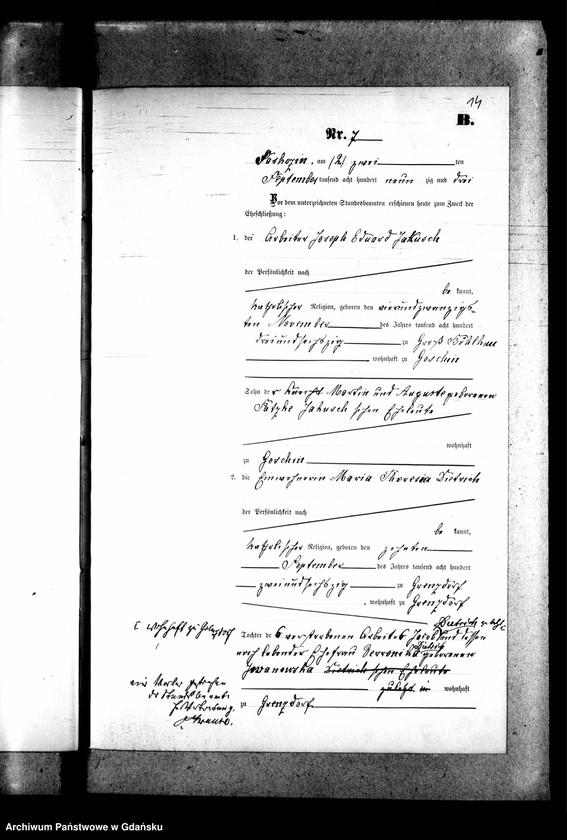 14
B.
Nr. 7
am (2) zwei ten
September tausend acht hundert neun zig und drei
Vor dem unterzeichneten Standesbeamten erschienen heute zum Zweck der
Eheschließung:
1. der Arbeiter Joseph Eduard Jakusch
der Persönlichkeit nach
be kannt,
katholischer Religion, geboren den vierundzwanzigs-
ten November des Jahres tausend acht hundert
dreiundsechszig zu Groß Böhlkau
, wohnhaft zu Goschin
Sohn der Knecht Martin und Auguste geborenen
Jakusch'schen Eheleute
wohnhaft
zu Goschin
2. die Einwohnerin Maria Theresia Dietrich
der Persönlichkeit nach
be kannt,
katholischer Religion, geboren den zehnten
September des Jahres tausend acht hundert
zweiundsechszig zu Grenzdorf
, wohnhaft zu Grenzdorf
Tochter des verstorbenen Arbeiters Jacob und dessen
noch lebender Ehefrau geborenen
Dietrich'schen Eheleute
zuletzt in wohnhaft
zu Grenzdorf.
Archiwum Państwowe w Gdańsku